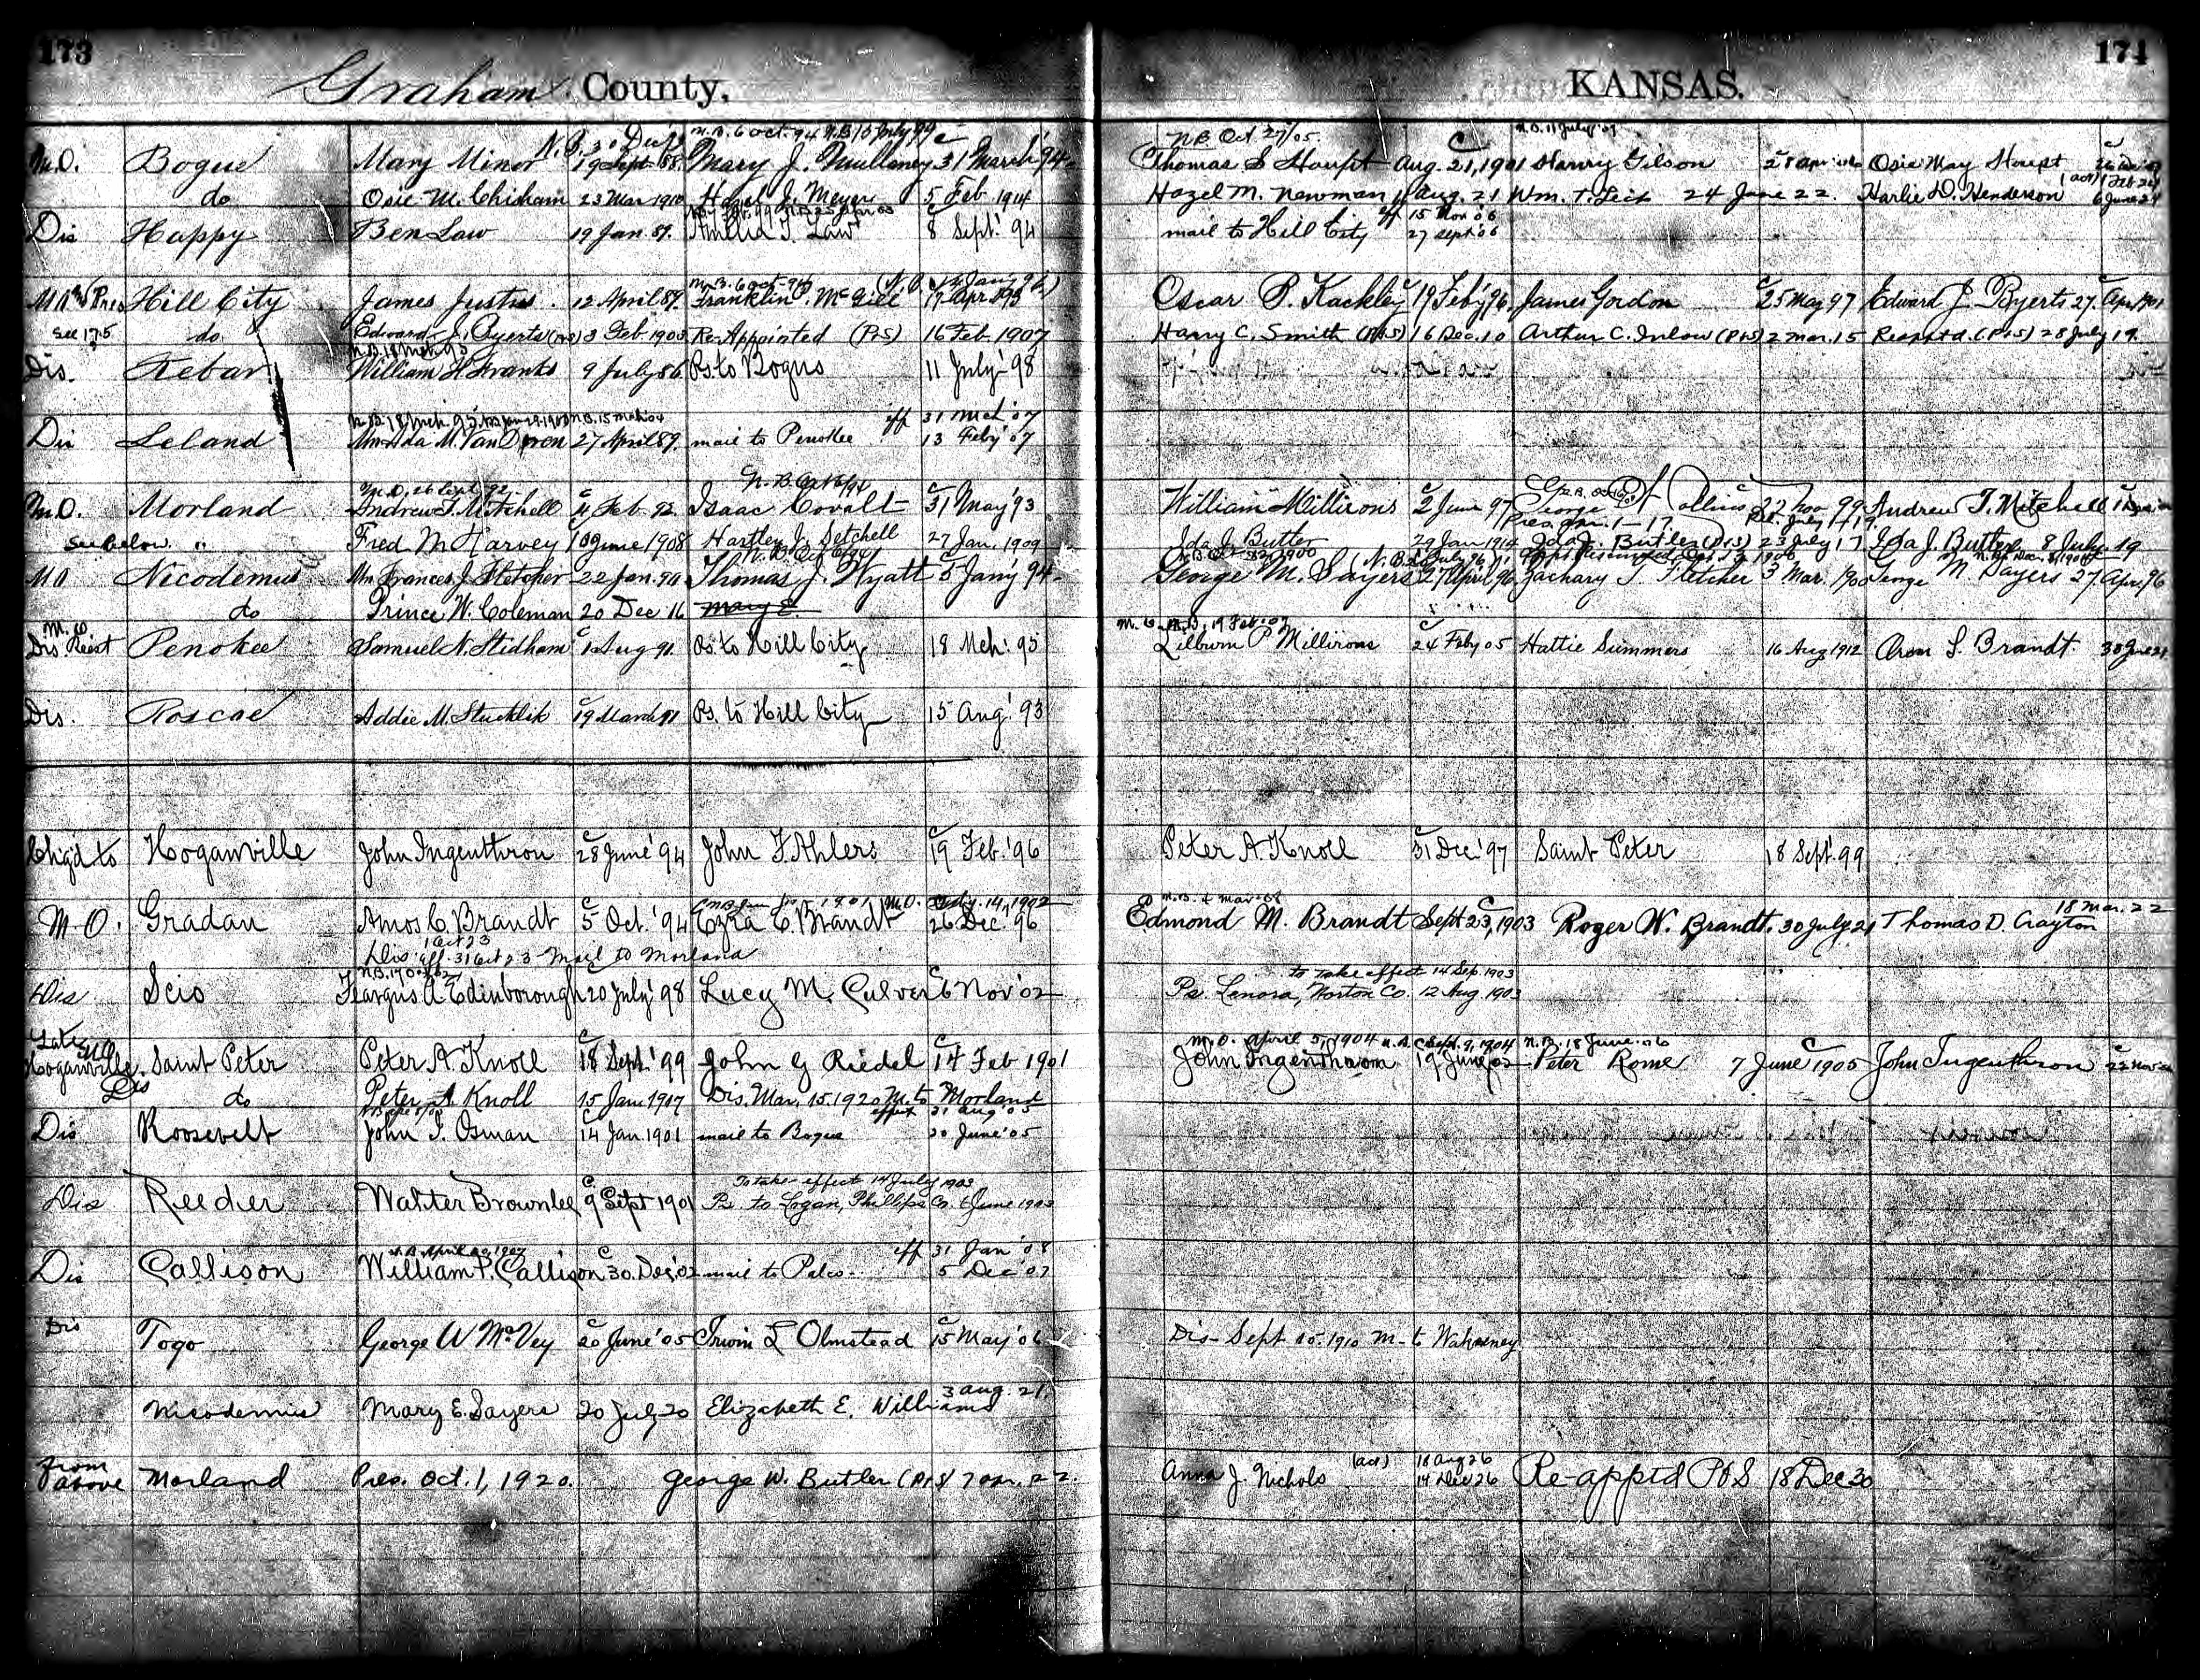 173
174
Graham County,
KANSAS.
N.B. 30 Dec
M.B. 6 Oct. 94 N.B. 10 July 99
N.B. Oct 27/05.
M.O. Bogue Mary Minor 19 Sept 88. Mary J. Mullaney 31 March 94
Thomas S Haupt Aug. 21, 1901 Harry Gilson 28 Apr Osie May Houpt
do Osie M. Chisham 23 Mar 1910 Hazel J. Meyer 5 Feb 1914
Hazel M. Newman 11 Aug. 21 Wm. T. Leck 24 June 22. Harlie D. Henderson 6 June 24
eff 15 Nov 06
Dis Happy Ben Law 19 Jan. 89. Amelia T. Law 8 Sept. 94
mail to Hill City 27 Sept 06
M.B. 6 Oct-94
Pres Hill City James Justus. 12 April 89. Franklin McGill 19 Apr. 93
Oscar P. Kackley 19 Feby 96 James Gordon 25 May 97 Edward J. Byerts 27. Apr.
See 175 do Edward J. Byerts 3 Feb 1903 Re-Appointed (P&S) 16 Feb 1907
Harry C. Smith (P&S) 16 Dec. 10 Arthur C. Inlow (P&S) 2 Mar. 15 Reapptd. (P&S) 28 July 19.
N.B. 18 Mch 95
Dis. Kebar William H. Franks 9 July 86 Ps. to Bogue 11 July 98
eff 31 Mch '07
Dis Leland Ada M. Van Doren 27 April 89. mail to Penokee 13 Feby '07
M.O. 26 Sept 92
M.O. Morland Andrew T. Mitchell 4 Feb 92. Isaac Covalt 31 May 93
William Millirons 2 June 97 George 22 Nov 99 Andrew T. Mitchell
Pres. Jan. 1-17. Rel. July 1-19.
See below " Fred M Harvey 10 June 1908 Hartley J. Setchell 27 Jan. 1909
Ida J. Butler 29 Jan 1914 Ida J. Butler (P&S) 23 July 17 Ida J. Butler 8 July 19
Nicodemus Frances J. Fletcher 22 Jan. 90 Thomas J. Wyatt 5 Jany 94
George M. Sayers 27 April 96 Zachary T. Fletcher 3 Mar. 1900 George M Sayers 27 Apr. 96
do Prince W. Coleman 20 Dec 16 Mary E.
Dis. Penokee Samuel N. Stidham 1 Aug 91. Ps. to Hill City 18 Mch. 95
Lilburn P Millirons 24 Feby 05 Hattie Summers 16 Aug 1912 Oron S. Brandt.
Dis. Roscoe Addie M. Stucklik 19 March 91 Ps. to Hill City 15 Aug. 93
Chg'd to Hoganville John Ingenthron 28 June '94 John F. Ahlers 19 Feb. '96
Peter A. Knoll 31 Dec. '97 Saint Peter 18 Sept. 99
18 Mar. 22
M.O. Gradan Amos C. Brandt 5 Oct. '94 Ezra C. Brandt 26 Dec. '96
Edmond M. Brandt Sept 23, 1903 Roger W. Brandt. 30 July 21 Thomas D. Crayton
1 Oct 23
Dis. eff. 31 Oct 23 Mail to Morland
to take effect 14 Sep. 1903
Dis Scio Feargus A Edinborough 20 July '98 Lucy M. Culver 6 Nov '02
Ps. Lenora, Norton Co. 12 Aug. 1903
M.O. April 5, 1904 N.B. 18 June 06
Late Hoganville. Saint Peter Peter A. Knoll 18 Sept. '99 John G Riedel 14 Feb 1901
John Ingenthron 19 June 02 Peter Rome 7 June 1905 John Ingenthron
Dis do Peter A Knoll 15 Jan. 1917 Dis. Mar. 15. 1920 M. to Morland
effect 31 Aug '05
Dis Roosevelt John I. Osman 14 Jan. 1901 mail to Bogue 20 June '05
To take effect 14 July 1903
Dis Reeder Walter Brownlee 9 Sept 1901 Ps to Logan, Phillips Co. 6 June 1903
N.B. April
eff 31 Jan '08
Dis Callison William P. Callison 30 Dec, 02 mail to Palco. 5 Dec '07
Dis Togo George W McVey 20 June '05 Irwin L Olmstead 15 May '06
Dis- Sept 15. 1910 M- to Wakeeney
3 Aug. 21
Nicodemus Mary E. Sayers 20 July 20 Elizabeth E. Williams
from above Morland Pres. Oct. 1, 1920. George W. Butler (P&S) 7 Apr. 22.
Anna J. Nichols (act) 16 Aug 26
14 Dec 26 Re-apptd P&S 18 Dec 30